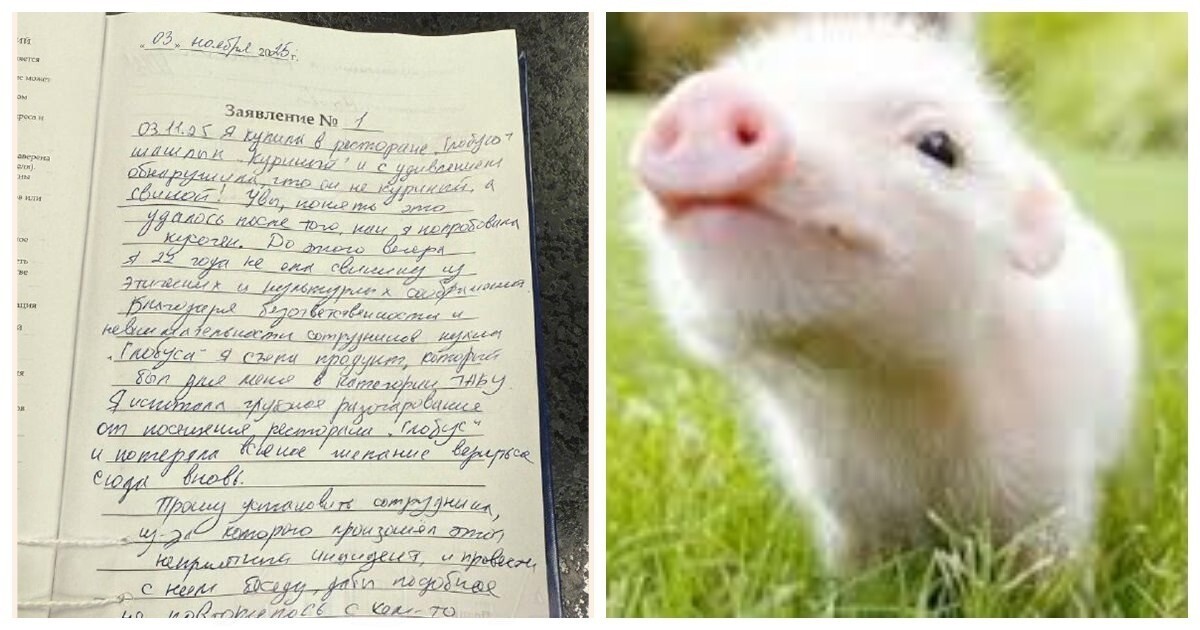 ий
ается
же может
ом
реса и
аверена
ля).
ны
е или
ное
еть
тве
ация
ля
ов
"03" ноября 2025 г.
Заявление № 1
03.11.25 Я купила в ресторане "Глобус"
шашлык "Куриный" и с удивлением
обнаружила, что он не куриный, а
свиной! Увы, понять это
удалось после того, как я попробовала
кусочек. До этого вечера
я 22 года не ела свинину из
этических и культурных соображений.
Благодаря безответственности и
невнимательности сотрудников кухни
"Глобуса" я съела продукт, который
был для меня в категории ТАБУ.
Я испытала глубокое разочарование
от посещения ресторана "Глобус"
и потеряла всякое желание вернуться
сюда вновь.
Прошу установить сотрудника,
из-за которого произошёл этот
неприятный инцидент, и провести
с ним беседу, дабы подобное
не повторилось с кем-то